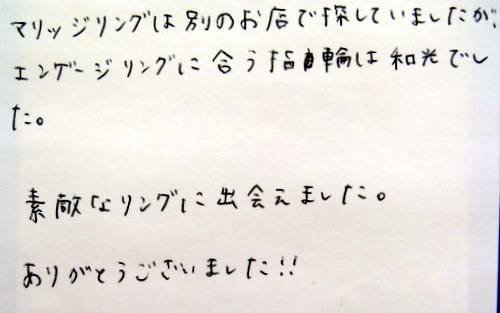 マリッジリングは別のお店で探していましたが、
エンゲージリングに合う指輪は和光でし
た。
素敵なリングに出会えました。
ありがとうございました!!